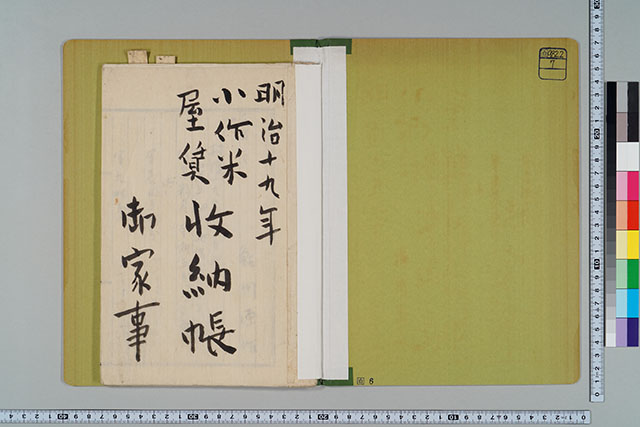 明治十九年
小作米
屋賃
收納帳
御家事
7